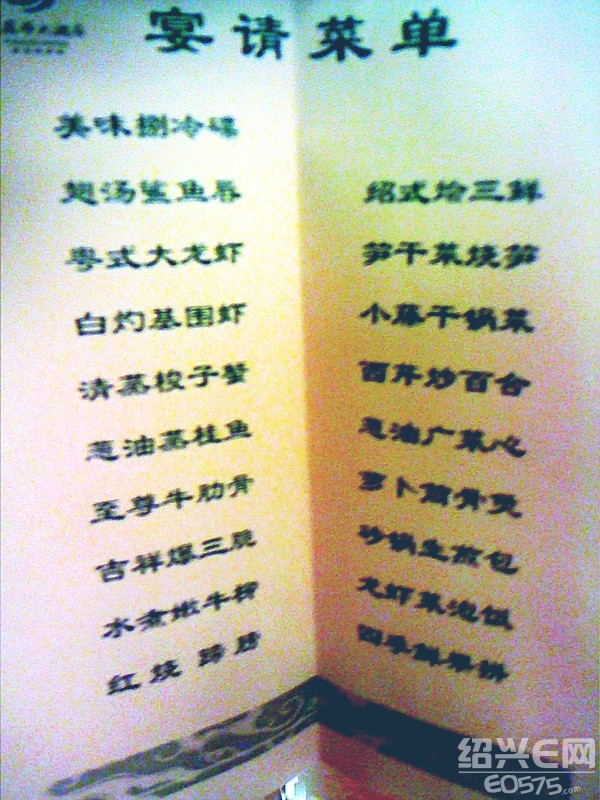 宴请菜单
美味捌冷碟
翅汤鲨鱼唇
粤式大龙虾
白灼基围虾
清蒸梭子蟹
葱油蒸桂鱼
至尊牛肋骨
吉祥爆三脆
水煮嫩牛柳
红烧蹄膀
绍式烩三鲜
笋干菜烧笋
小藤干锅菜
西芹炒百合
葱油广菜心
萝卜筒骨煲
砂锅生煎包
龙虾菜泡饭
四季鲜果拼
绍兴E网
E0575.com